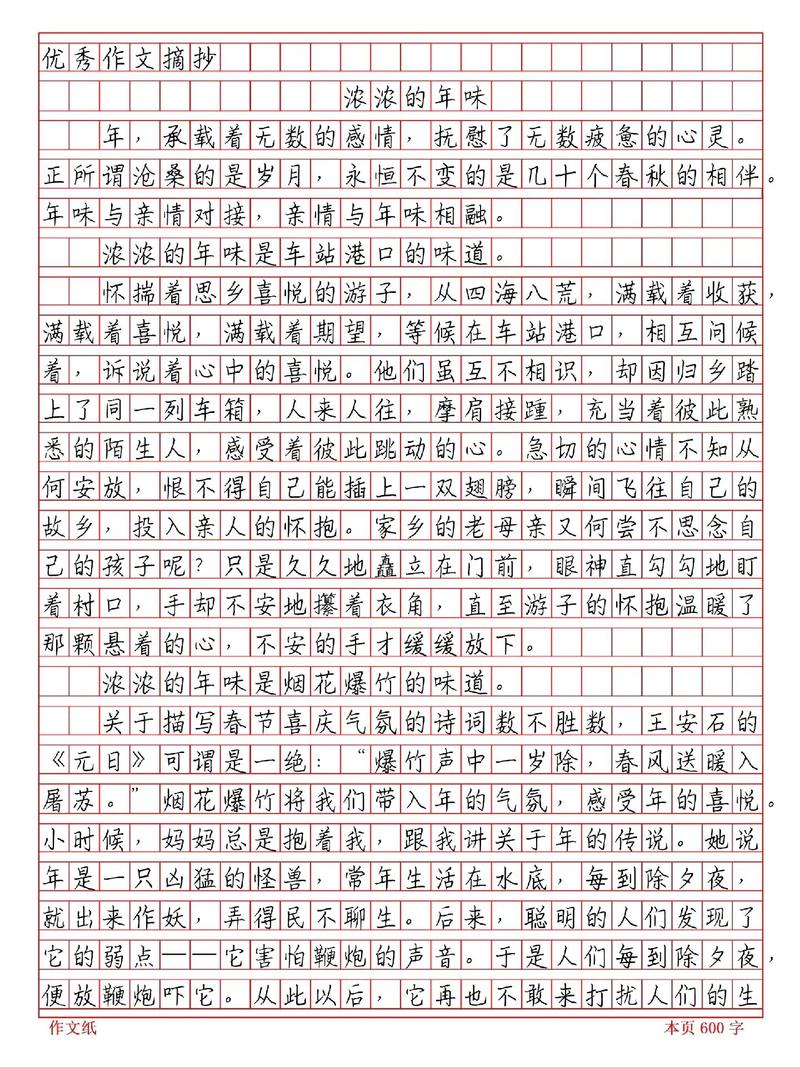 优秀作文摘抄
浓浓的年味
年，承载着无数的感情，抚慰了无数疲惫的心灵。
正所谓沧桑的是岁月，永恒不变的是几十个春秋的相伴。
年味与亲情对接，亲情与年味相融。
浓浓的年味是车站港口的味道。
怀揣着思乡喜悦的游子，从四海八荒，满载着收获，
满载着喜悦，满载着期望，等候在车站港口，相互问候
着，诉说着心中的喜悦。他们虽互不相识，却因归乡踏
上了同一列车箱，人来人往，摩肩接踵，充当着彼此熟
悉的陌生人，感受着彼此跳动的心。急切的心情不知从
何安放，恨不得自己能插上一双翅膀，瞬间飞往自己的
故乡，投入亲人的怀抱。家乡的老母亲又何尝不思念自
己的孩子呢？只是久久地矗立在门前，眼神直勾勾地盯
着村口，手却不安地攥着衣角，直至游子的怀抱温暖了
那颗悬着的心，不安的手才缓缓放下。
浓浓的年味是烟花爆竹的味道。
关于描写春节喜庆气氛的诗词数不胜数，王安石的
《元日》可谓是一绝：“爆竹声中一岁除，春风送暖入
屠苏。”烟花爆竹将我们带入年的气氛，感受年的喜悦。
小时候，妈妈总是抱着我，跟我讲关于年的传说。她说
年是一只凶猛的怪兽，常年生活在水底，每到除夕夜，
就出来作妖，弄得民不聊生。后来，聪明的人们发现了
它的弱点——它害怕鞭炮的声音。于是人们每到除夕夜，
便放鞭炮吓它。从此以后，它再也不敢来打扰人们的生
作文纸 本页600字